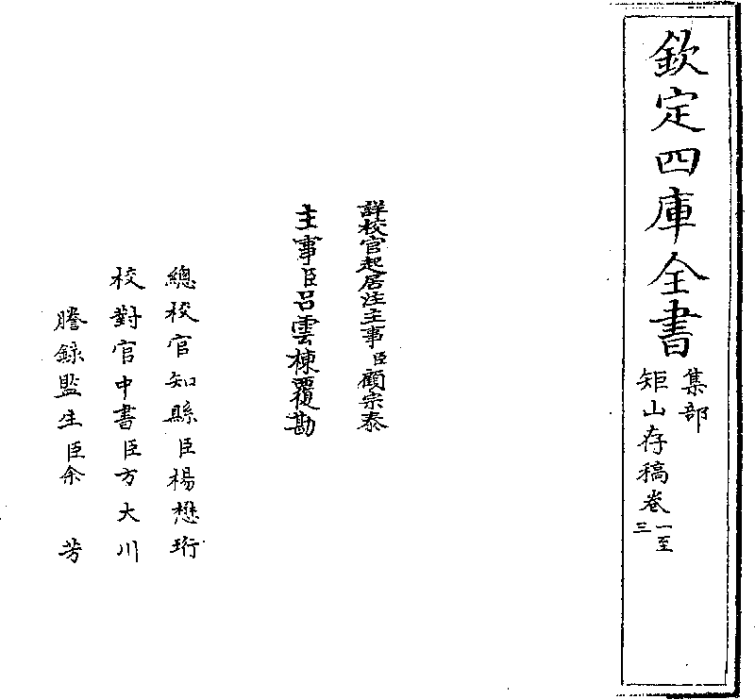 欽定四庫全書
集部
矩山存稿卷一至三
詳校官起居注主事臣顧宗泰
主事臣呂雲棟覆勘
總校官知縣臣楊懋珩
校對官中書臣方大川
謄錄監生臣余芳